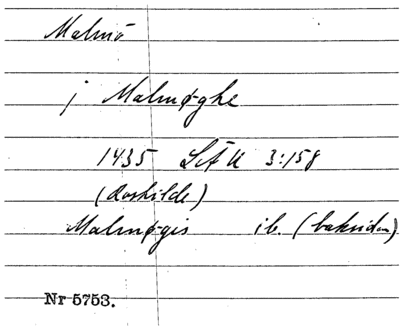 Malmö
j Malmøghe
1435 LAU 3:158
(Roskilde)
Malmøgis ib. (baksidan)
Nr 5753.